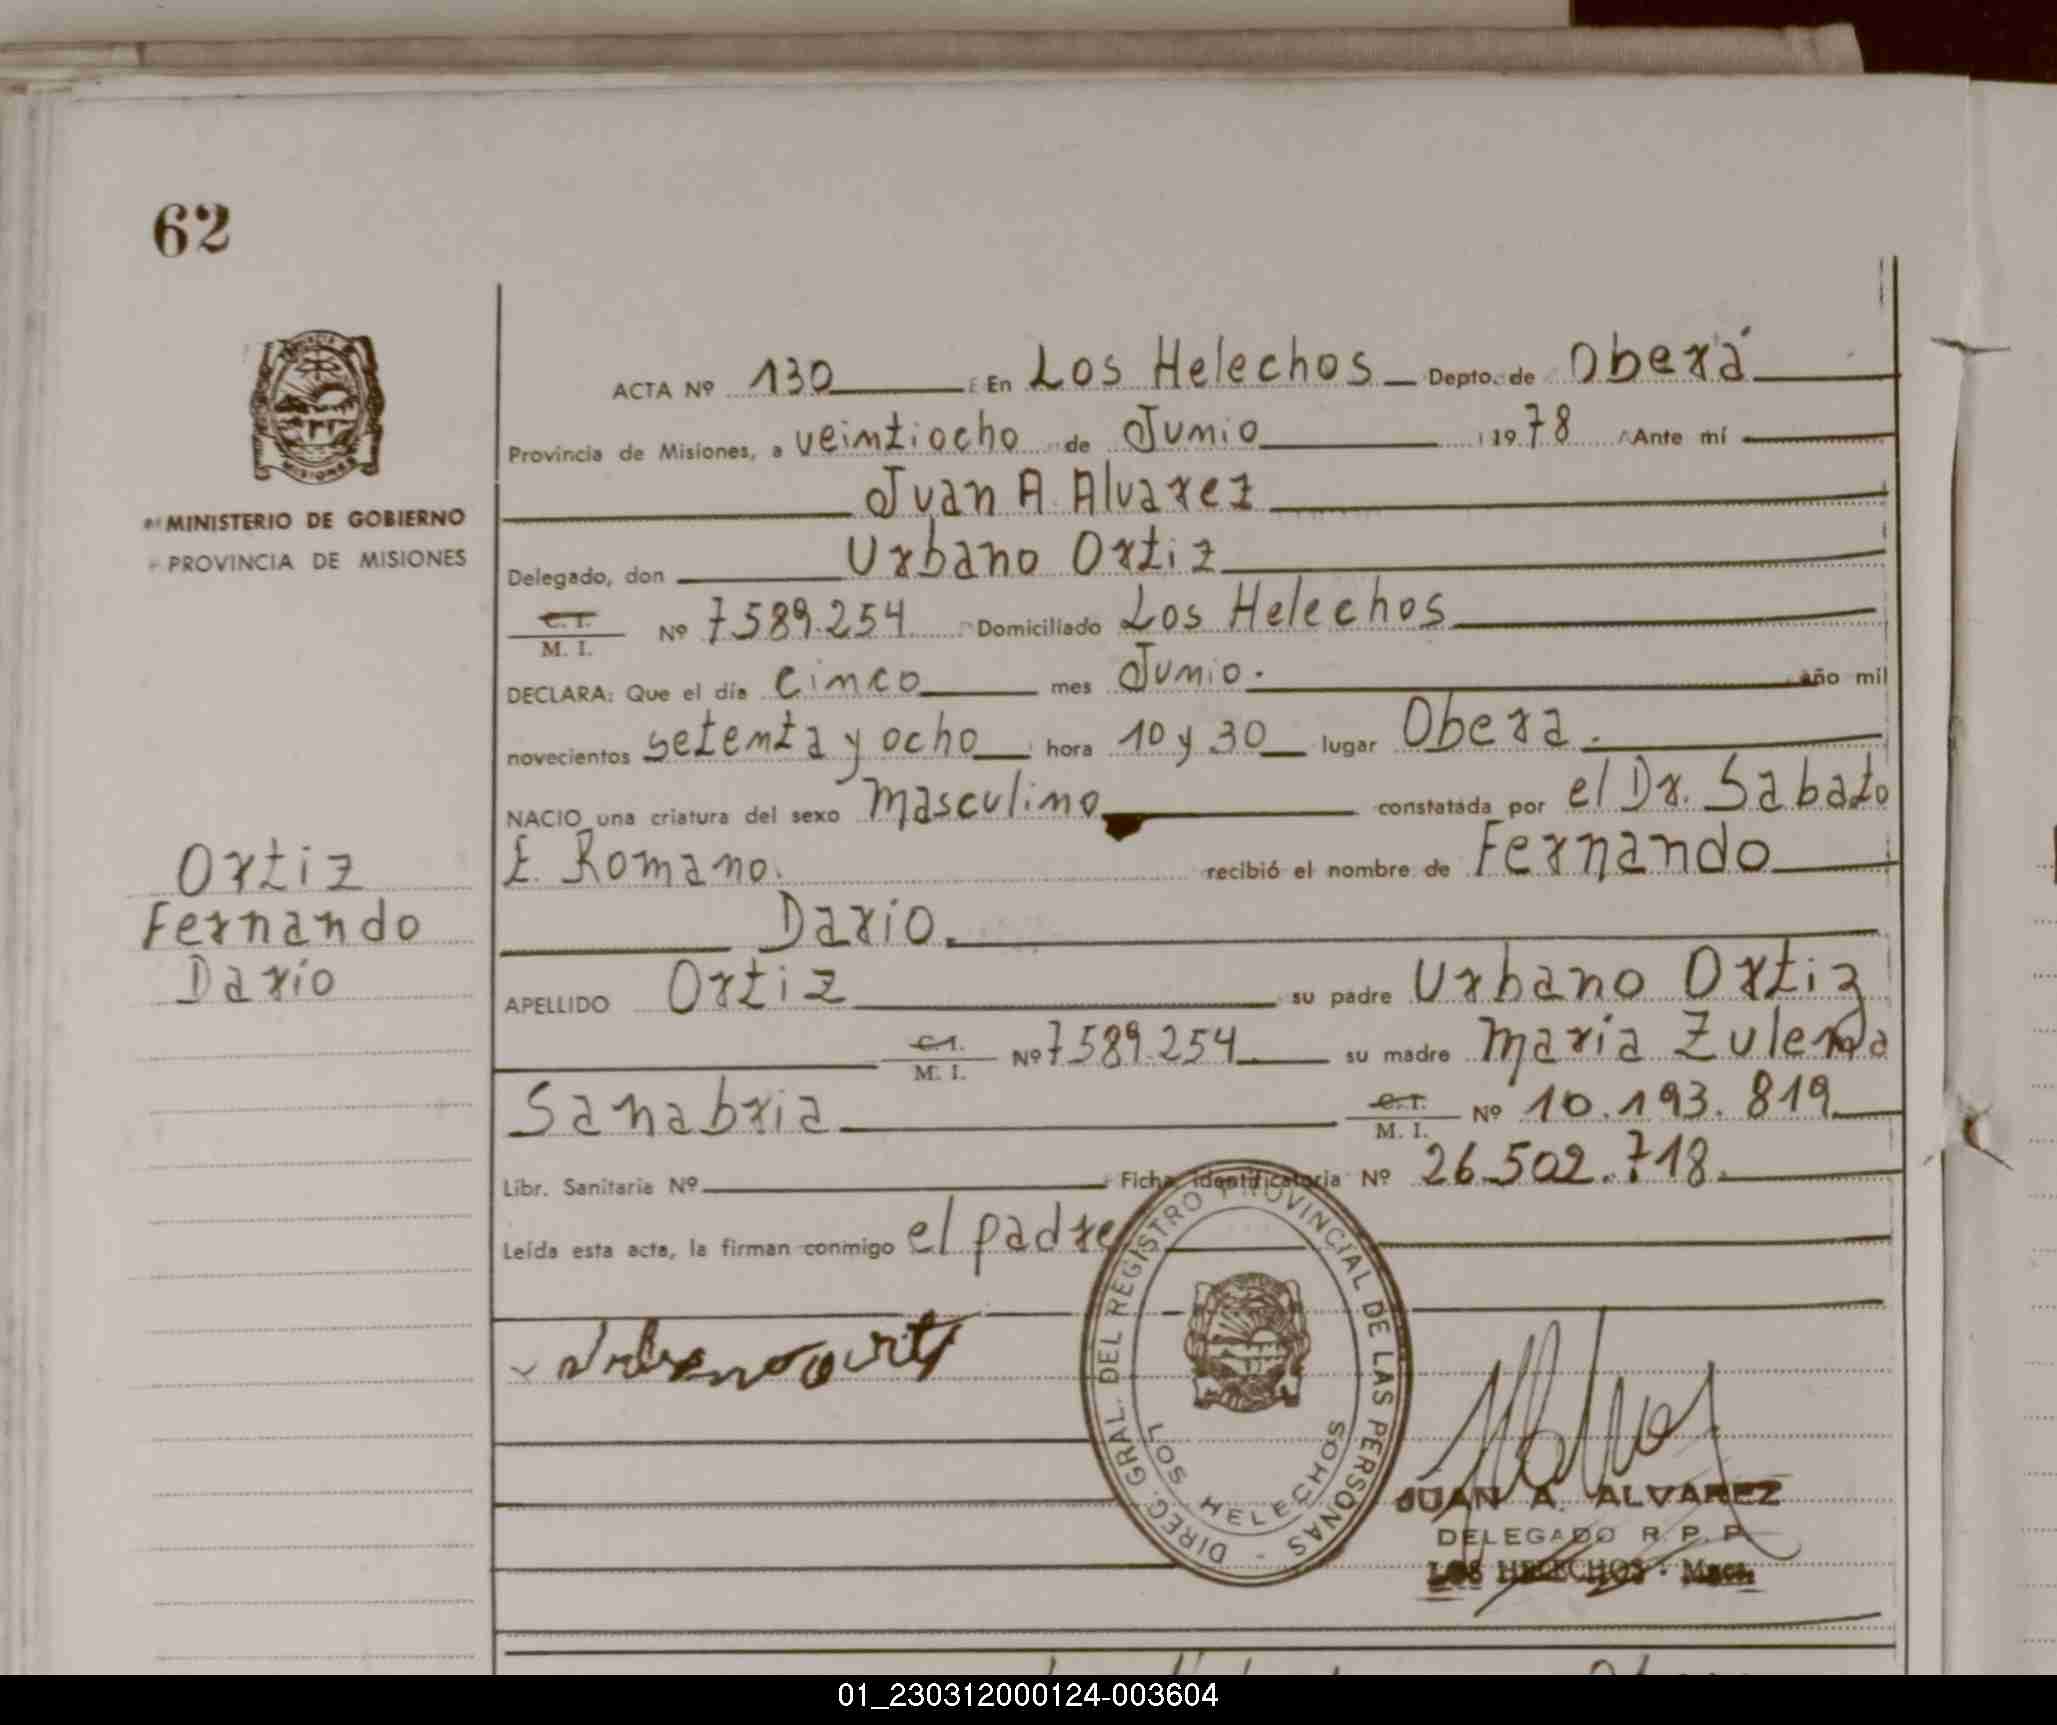 62
PROVINCIA DE
MISIONES
MINISTERIO DE GOBIERNO
PROVINCIA DE MISIONES
Ortiz
Fernando
Dario
ACTA Nº 130 En Los Helechos Depto. de Oberá
Provincia de Misiones, a veintiocho de Junio 1978 Ante mí
Juan A. Alvarez
Delegado, don Urbano Ortiz
C. I.
M. I. Nº 7.589.254 Domiciliado Los Helechos
DECLARA: Que el día cinco mes Junio. año mil
novecientos setenta y ocho hora 10 y 30 lugar Obera.
NACIO una criatura del sexo masculino constatada por el Dr. Sabato
E. Romano. recibió el nombre de Fernando
Dario.
APELLIDO Ortiz su padre Urbano Ortiz
C. I.
M. I. Nº 7.589.254 su madre Maria Zulema
Sanabria C. I.
M. I. Nº 10.193.819
Libr. Sanitaria Nº Ficha identificatoria Nº 26.502.718
Leída esta acta, la firman conmigo el padre
DIREC. GRAL. DEL REGISTRO PROVINCIAL DE LAS PERSONAS -
LOS HELECHOS
JUAN A. ALVAREZ
DELEGADO R. P. P.
LOS HELECHOS - Mnes.
01_230312000124-003604